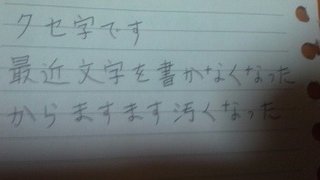 クセ字です
最近文字を書かなくなった
からますます汚くなった